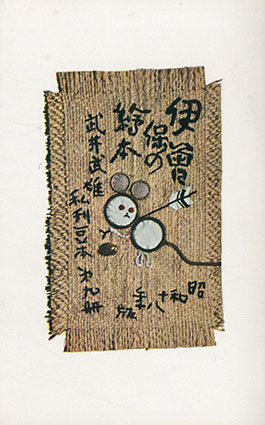 伊曾保の
繪本
武井武雄
私刊豆本 第九冊
昭和十八年版